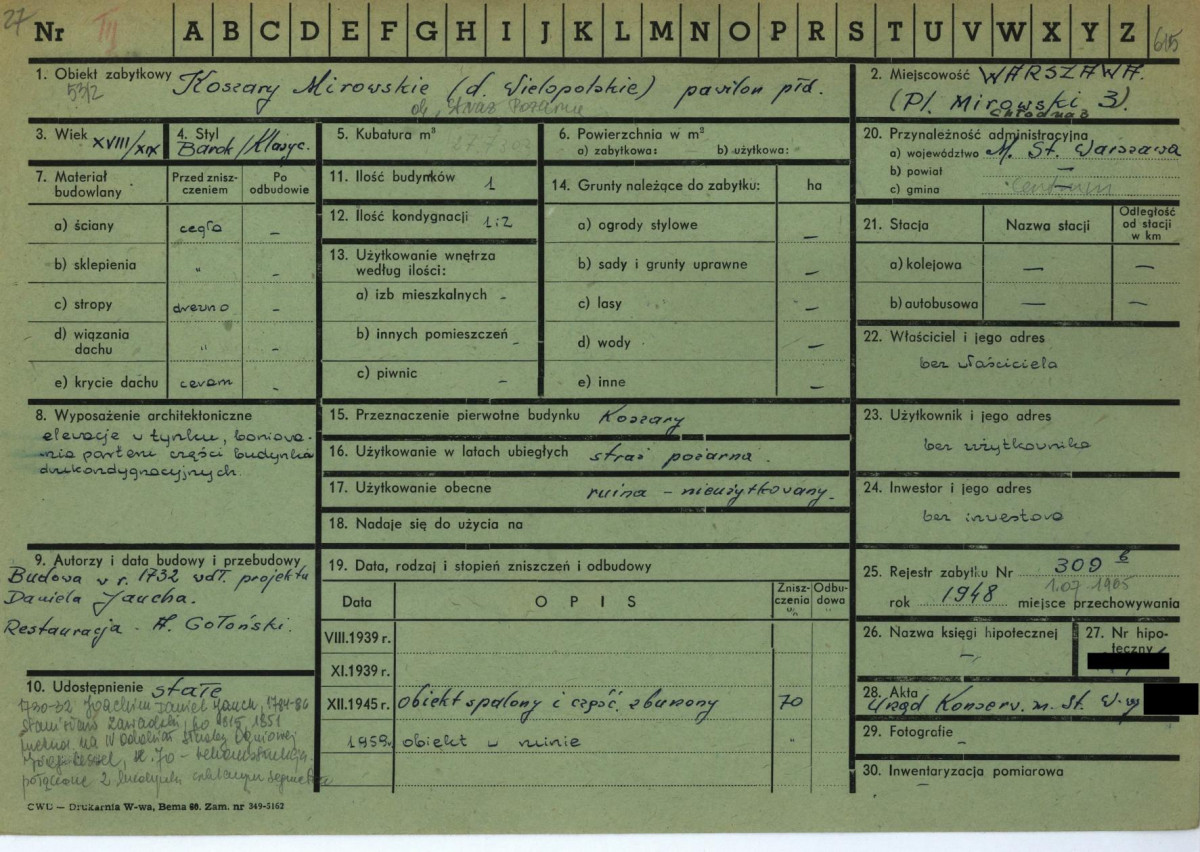 27
Nr III A B C D E F G H I J K L M N O P R S T U V W X Y Z 615
1. Obiekt zabytkowy Koszary Mirowskie (d. Wielopolskie) pawilon płd.
532
ob. Straż Pożarna
2. Miejscowość WARSZAWA.
(Pl. Mirowski 3).
Chłodna 3
3. Wiek XVIII/XIX
4. Styl
Barok/Klasyc.
5. Kubatura m³
6. Powierzchnia w m²
a) zabytkowa: b) użytkowa:
7. Materiał budowlany
Przed zniszczeniem
Po odbudowie
a) ściany cegła –
b) sklepienia " –
c) stropy drewno –
d) wiązania dachu " –
e) krycie dachu ceram –
8. Wyposażenie architektoniczne
elewacje w tynku, boniowa-
nia parteru części budynku
dwukondygnacyjnych
9. Autorzy i data budowy i przebudowy
Budowa w r. 1732 wdł. projektu
Daniela Jaucha.
Restauracja - A. Gołoński.
10. Udostępnienie stałe
1730-32 Joachim Daniel Jauch, 1784-86
Stanisław Zawadzki, po 1815, 1851
na IV oddział straży ogniowej
l. 70 - rekonstrukcja
połączone 2 budynki
CWD — Drukarnia W-wa, Bema 60. Zam. nr 349-5162
11. Ilość budynków 1
12. Ilość kondygnacji 1:2
13. Użytkowanie wnętrza
według ilości:
a) izb mieszkalnych -
b) innych pomieszczeń -
c) piwnic -
14. Grunty należące do zabytku: ha
a) ogrody stylowe –
b) sady i grunty uprawne –
c) lasy –
d) wody –
e) inne –
15. Przeznaczenie pierwotne budynku Koszary
16. Użytkowanie w latach ubiegłych straż pożarna.
17. Użytkowanie obecne ruina – nieużytkowany.
18. Nadaje się do użycia na
19. Data, rodzaj i stopień zniszczeń i odbudowy
Data OPIS Zniszczenia % Odbudowa "
VIII.1939 r.
XI.1939 r.
XII.1945 r. obiekt spalony i częśc. zburzony 70
1959r. obiekt w ruinie "
20. Przynależność administracyjna
a) województwo M. St. Warszawa
b) powiat –
c) gmina – Centrum
21. Stacja Nazwa stacji Odległość od stacji w km
a) kolejowa – –
b) autobusowa – –
22. Właściciel i jego adres
bez właściciela
23. Użytkownik i jego adres
bez użytkownika
24. Inwestor i jego adres
bez inwestora
25. Rejestr zabytku Nr 309 b
1.07.1965
rok 1948 miejsce przechowywania
26. Nazwa księgi hipotecznej
–
27. Nr hipoteczny
28. Akta
Urząd Konserw. m. St. W-wy
29. Fotografie
–
30. Inwentaryzacja pomiarowa
–